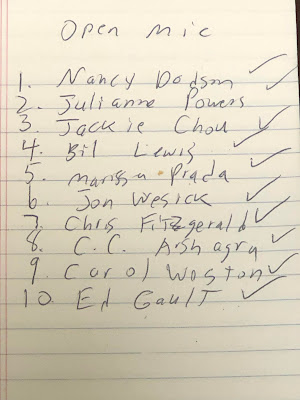 Open Mic
1. Nancy Dodson ✓
2. Julianne Powers
3. Jackie Chou ✓
4. Bil Lewis ✓
5. Marissa Prada ✓
6. Jon Wesick ✓
7. Chris Fitzgerald ✓
8. C.C. Arshagra ✓
9. Carol Weston ✓
10 Ed Gault ✓